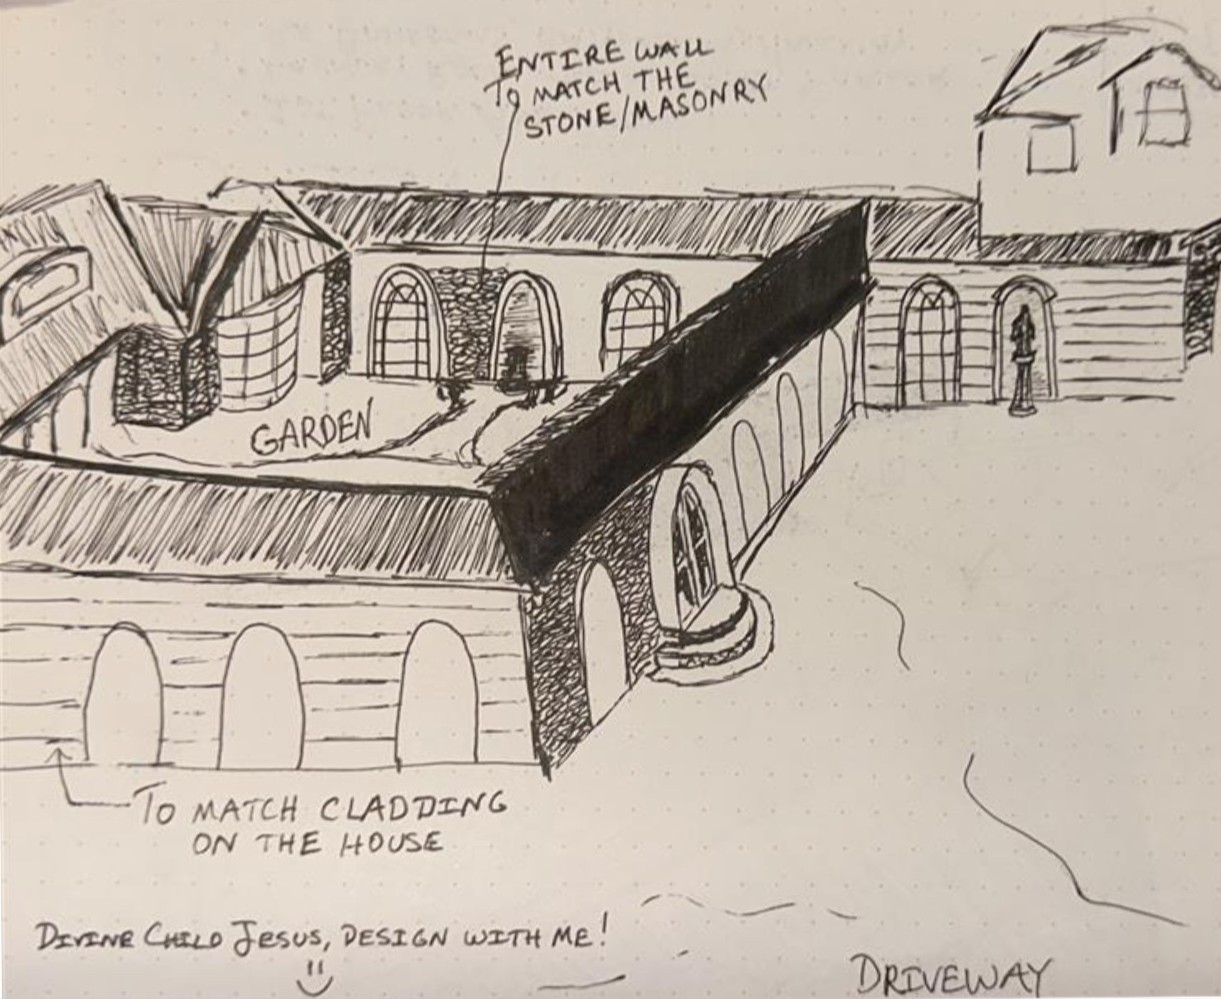 ENTIRE WALL
TO MATCH THE
STONE/MASONRY
GARDEN
TO MATCH CLADDING
ON THE HOUSE
DIVINE CHILD JESUS, DESIGN WITH ME!
DRIVEWAY